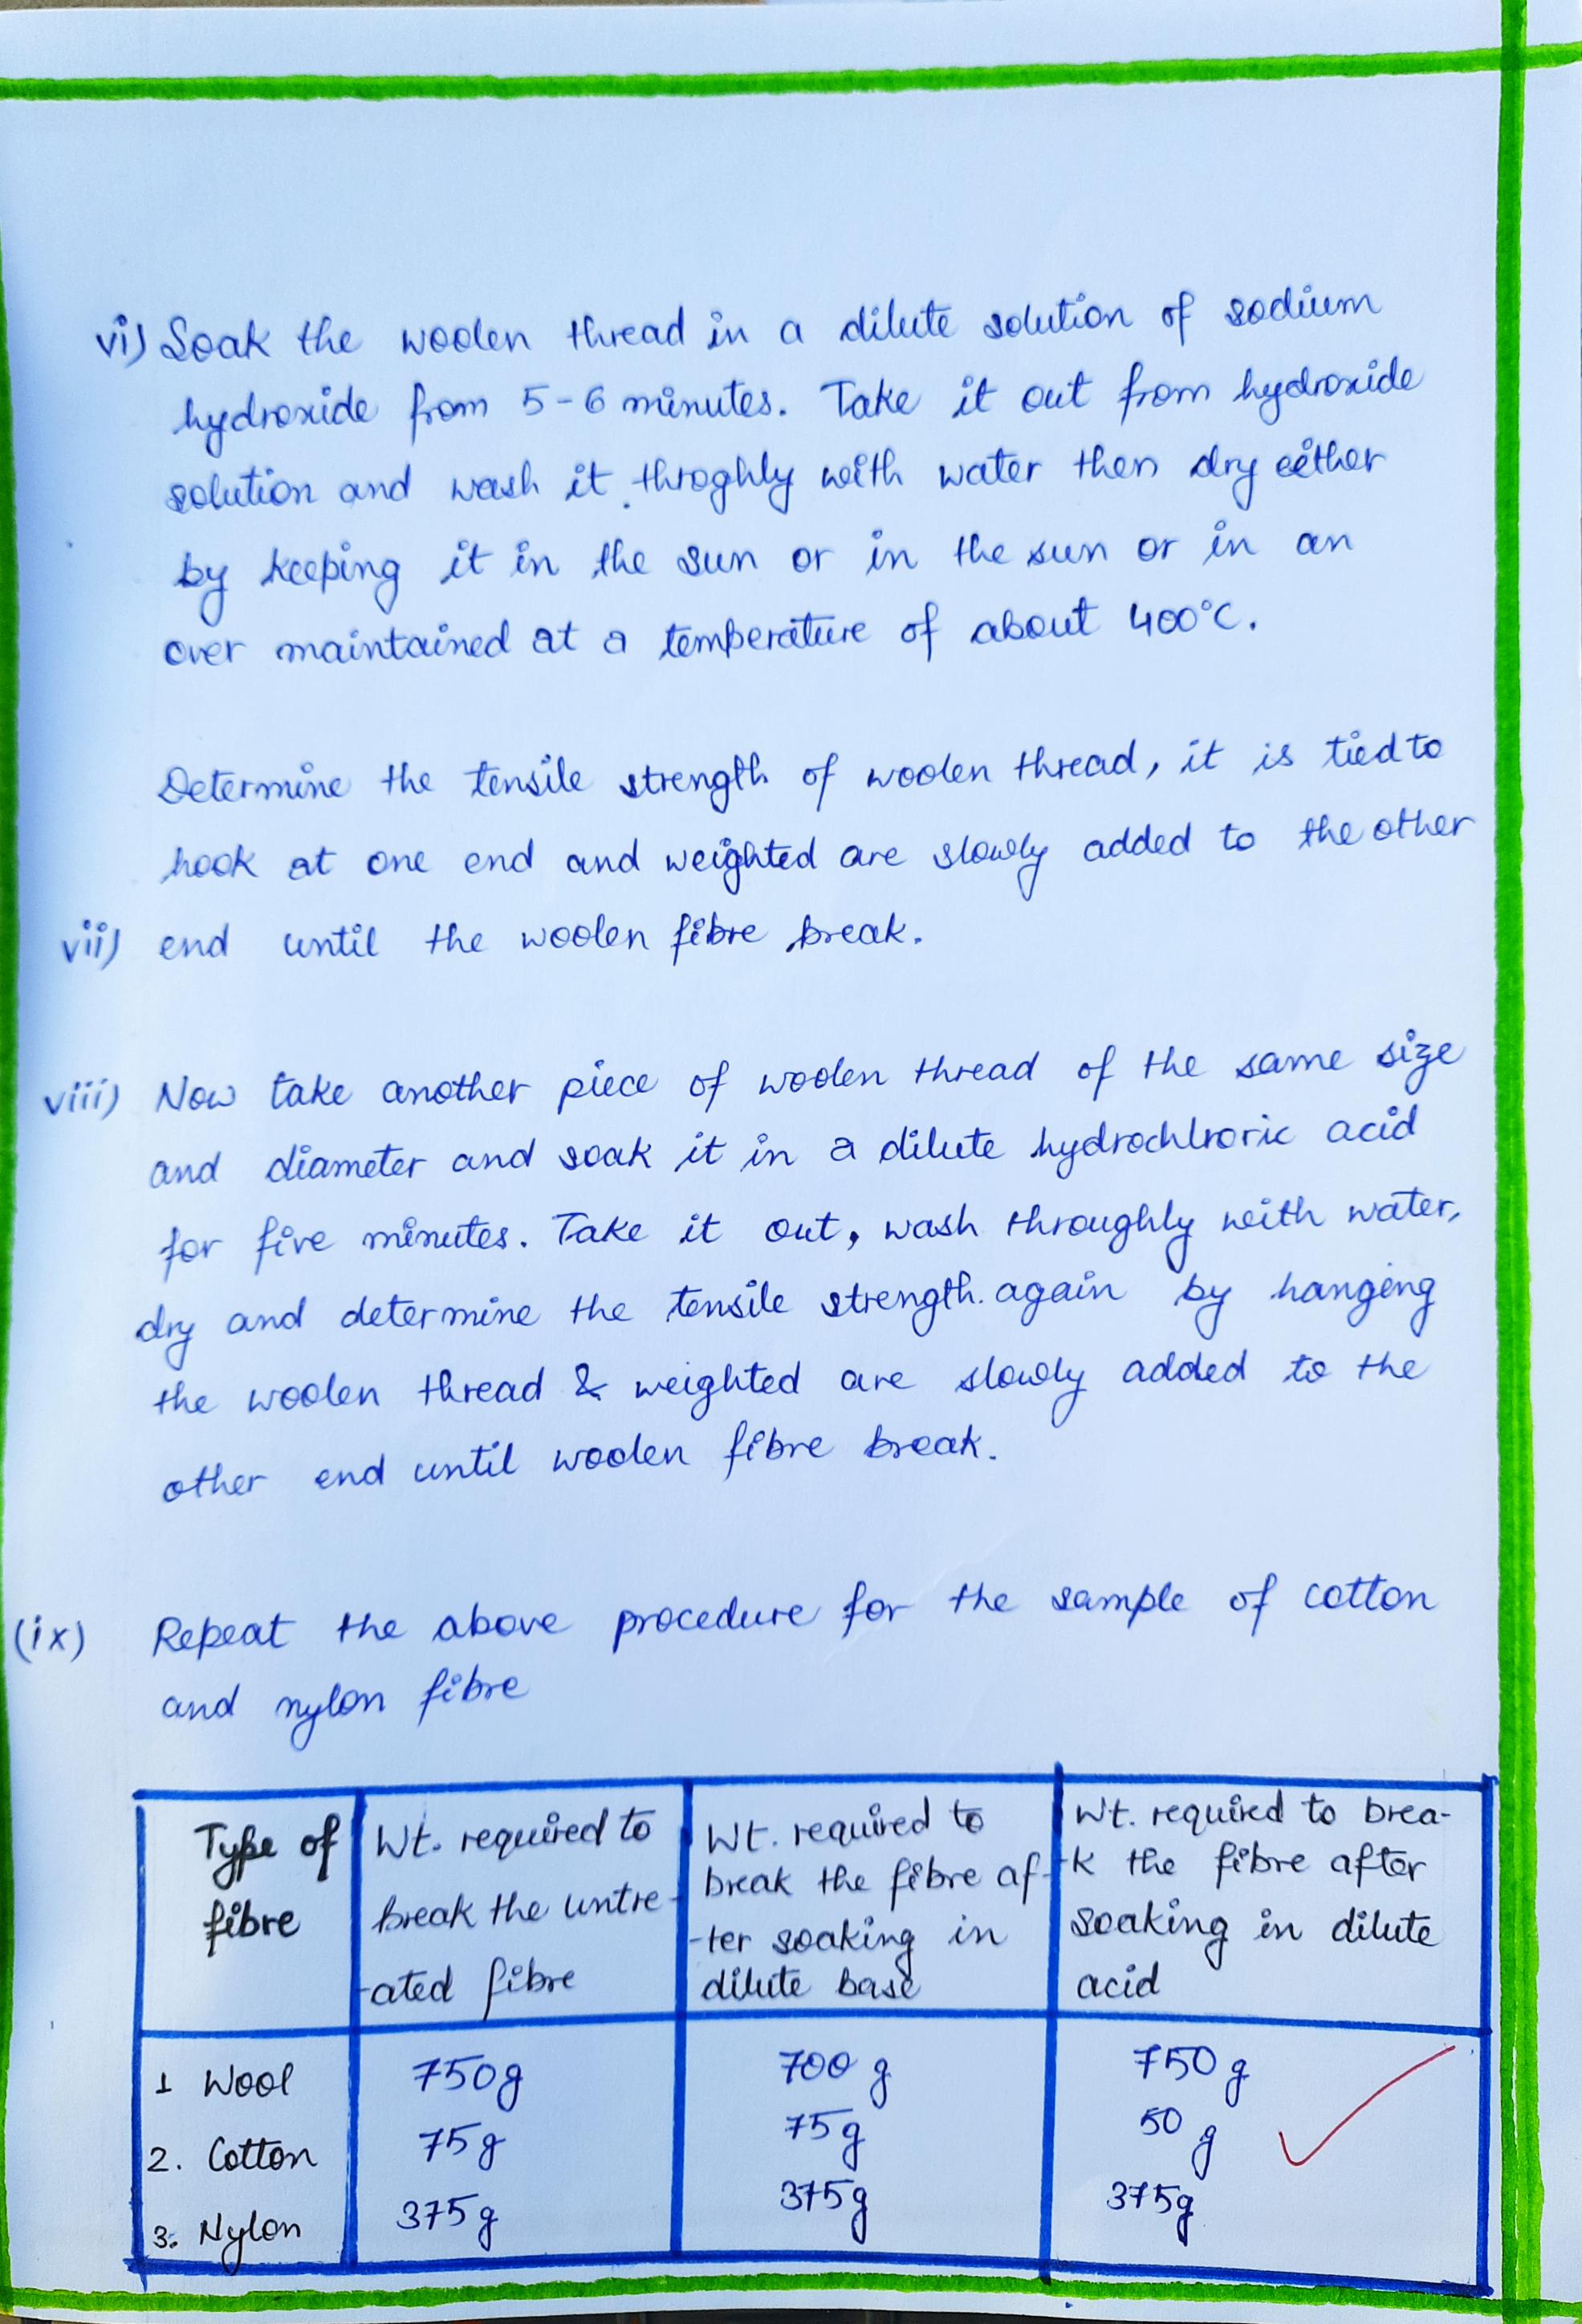 vi) Soak the woolen thread in a dilute solution of sodium
hydroxide from 5-6 minutes. Take it out from hydroxide
solution and wash it throghly with water then dry either
by keeping it in the sun or in the sun or in an
over maintained at a temperature of about 400°C.
Determine the tensile strength of woolen thread, it is tied to
hook at one end and weighted are slowly added to the other
vii) end until the woolen fibre break.
viii) Now take another piece of woolen thread of the same size
and diameter and soak it in a dilute hydrochlroric acid
for five minutes. Take it out, wash throughly with water,
dry and determine the tensile strength. again by hanging
the woolen thread & weighted are slowly added to the
other end until woolen fibre break.
(ix) Repeat the above procedure for the sample of cotton
and nylon fibre
Type of
fibre
Wt. required to
break the untre-
-ated fibre
Wt. required to
break the fibre af-
-ter soaking in
dilute base
Wt. required to brea-
-k the fibre after
soaking in dilute
acid
1 Wool 750g 700 g 750 g
2. Cotton 75g 75g 50 g
3. Nylon 375g 375g 375g